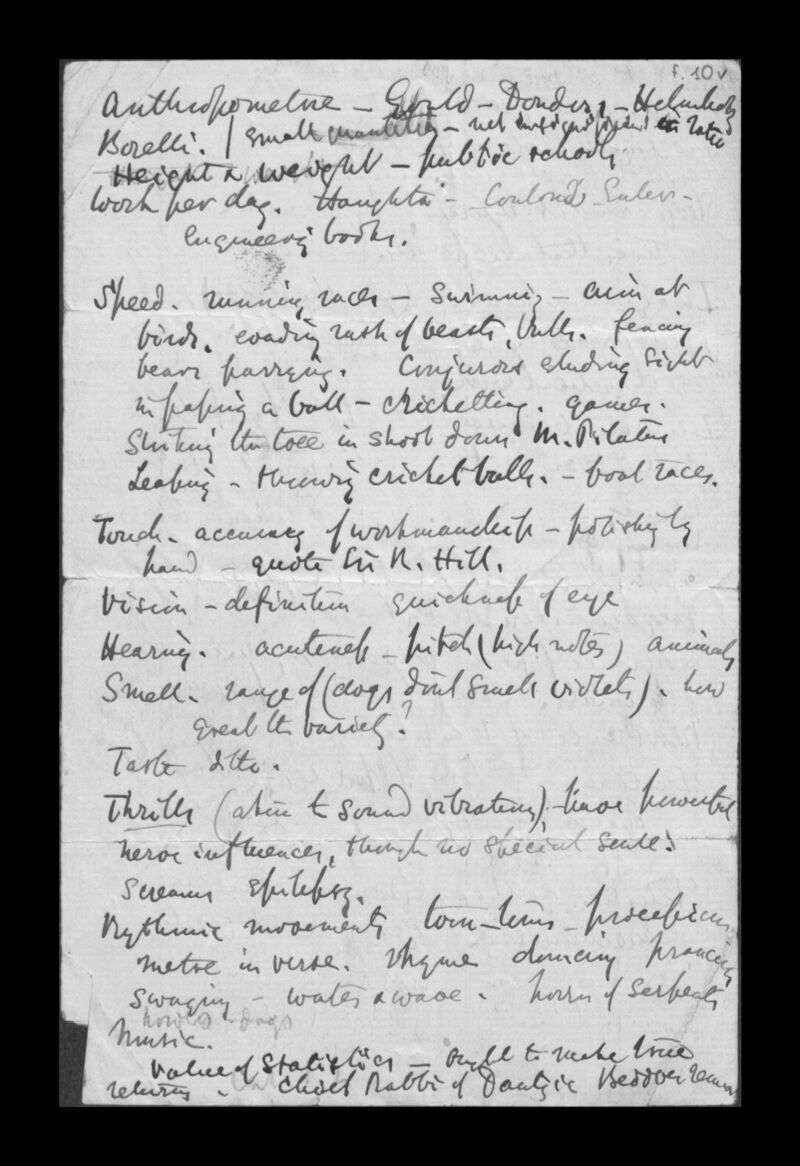 f. 10v
Anthropometrie – Gould – Donders – Helmholtz
Borelli. | small quantities – not insignificant in ratio
Height & weight – public schools
Work per day. Haughton – Coulomb Euler –
Engineering books.
Speed. running races – swimming – aim at
birds. evading rush of beasts, bulls. fencing
bears parrying. Conjurors eluding sight
in passing a ball – cricketting. games.
in shoot down M. Pilatus
Leaping – throwing cricket balls. – boat races.
Touch – accuracy of workmanship – polishing by
hand – quote Sir R. Hill.
Vision – definition quickness of eye
Hearing. acuteness – pitch (high notes) animals
Smell – range of (dogs dont smell violets). how
great the variety?
Taste ditto.
Thrills (akin to sound vibrations), have powerful
nerve influences, though no special sense:
screams epilepsy.
Rythmic movements tom-toms – processions
metre in verse. rhyme dancing prancing
swaying – water & wave. horror of serpents
howls – dogs
Music.
Value of Statistics – ought to make true
returns. Chief Rabbi of Dantzic Beddoe